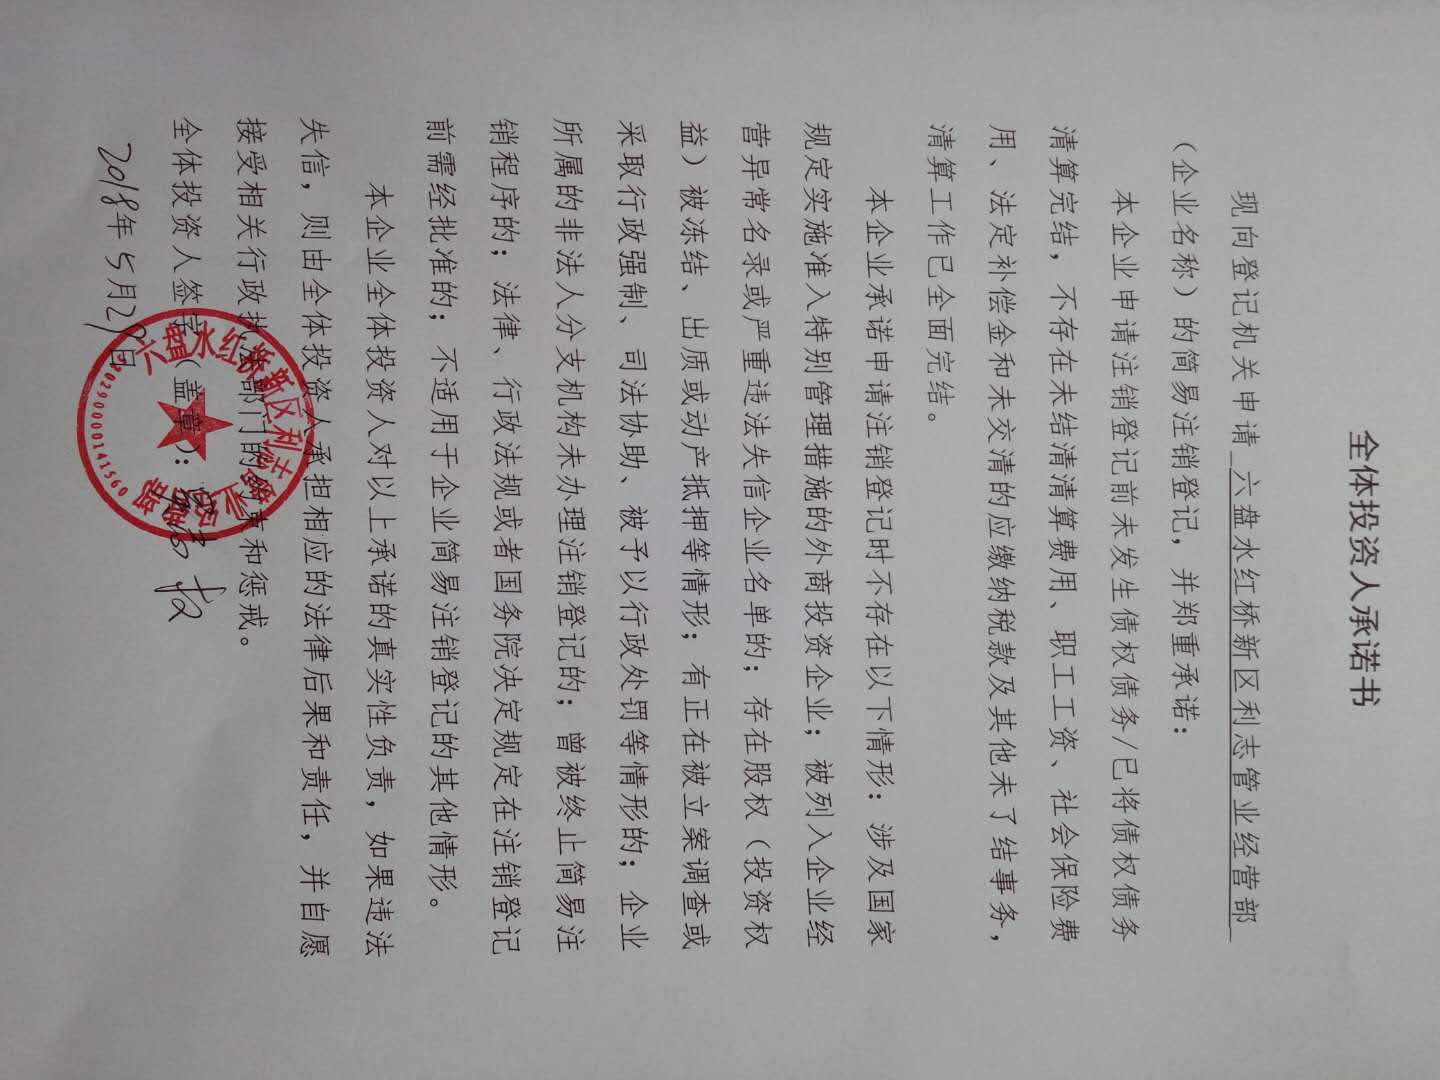 全体投资人承诺书
现向登记机关申请 六盘水红桥新区利志管业经营部
（企业名称）的简易注销登记，并郑重承诺：
本企业申请注销登记前未发生债权债务/已将债权债务
清算完结，不存在未结清清算费用、职工工资、社会保险费
用、法定补偿金和未交清的应缴纳税款及其他未了结事务，
清算工作已全面完结。
本企业承诺申请注销登记时不存在以下情形：涉及国家
规定实施准入特别管理措施的外商投资企业；被列入企业经
营异常名录或严重违法失信企业名单的；存在股权（投资权
益）被冻结、出质或动产抵押等情形；有正在被立案调查或
采取行政强制、司法协助、被予以行政处罚等情形的；企业
所属的非法人分支机构未办理注销登记的；曾被终止简易注
销程序的；法律、行政法规或者国务院决定规定在注销登记
前需经批准的；不适用于企业简易注销登记的其他情形。
本企业全体投资人对以上承诺的真实性负责，如果违法
失信，则由全体投资人承担相应的法律后果和责任，并自愿
接受相关行政执法部门的约束和惩戒。
全体投资人签字（盖章）：
2018年5月29日
六盘水红桥新区利志管业经营部
520290000141560